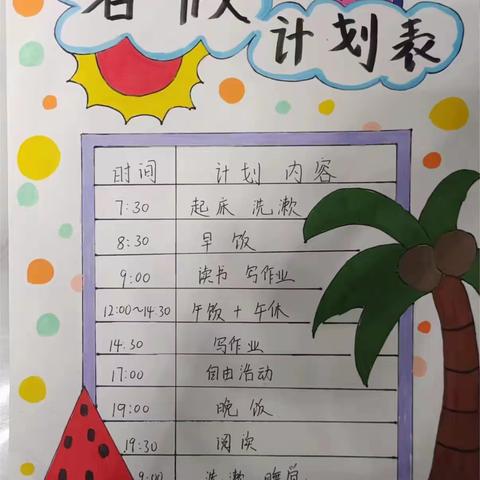 暑假
计划表
时间 计划 内容
7:30 起床 洗漱
8:30 早饭
9:00 读书 写作业
12:00~14:30 午饭+午休
14:30 写作业
17:00 自由活动
19:00 晚饭
19:30 阅读
9:00 洗漱 睡觉